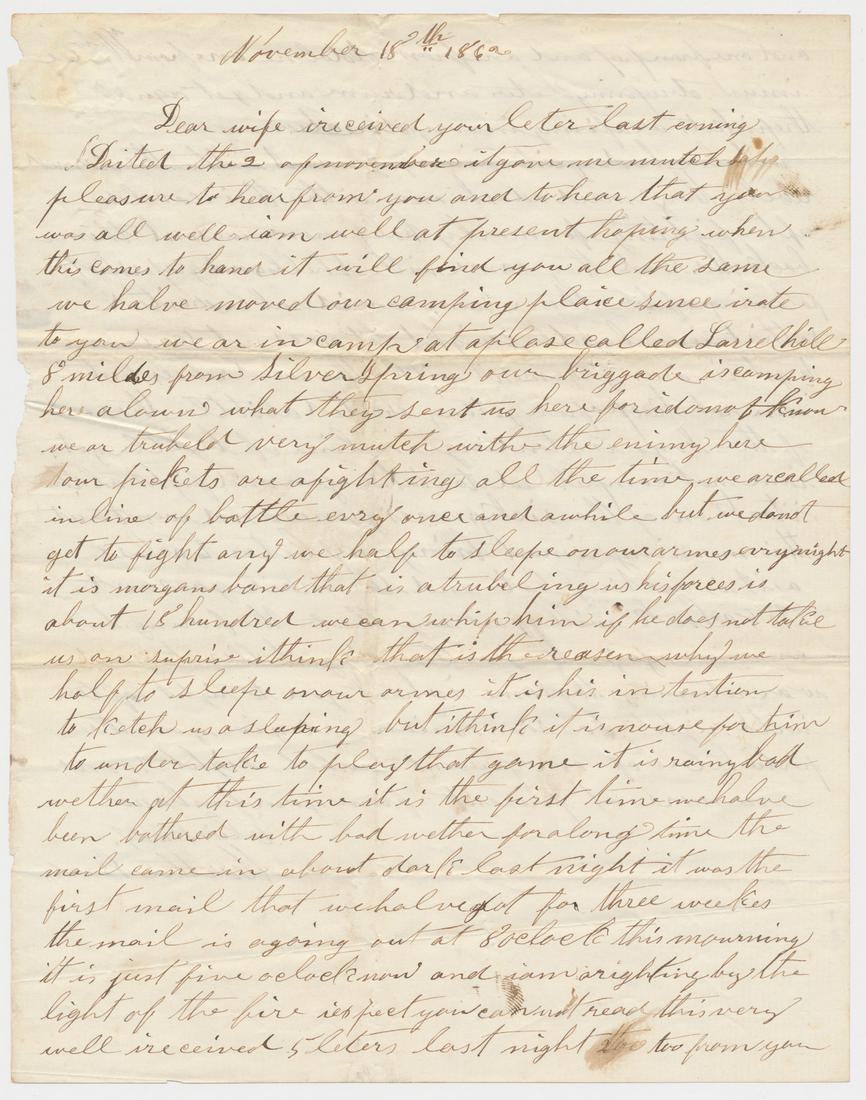 November 18th 1862
Dear wife ireceived your leter last evning
Daited the 2 of november it gove me mutch
pleasure to hear from you and to hear that you
was all well iam well at present hoping when
this comes to hand it will find you all the same
we halve moved our camping plaice since irote
to you we ar in camp at a plase called Larrel hill
8 miles from Silver Spring our briggade is camping
here alown what they sent us here for i donot know
we ar trubeld very mutch withe the enimy here
our pickets are afighting all the time we are called
in line of battle evry once and awhile but we donot
get to fight any we half to sleepe on our armes evry night
it is morgans band that is atrubeling us his forces is
about 18 hundred we can whip him if he does not take
us on suprise ithink that is the reasen why we
half to sleepe on our armes it is his in tention
to ketch us a sleeping but ithink it is no use for him
to under take to play that game it is rainy bad
wether at this time it is the first time we halve
been bothered with bad wether for along time the
mail came in about dark last night it was the
first mail that we halve got for three weekes
the mail is agoing out at 8 oclock this mourning
it is just five oclock now and iam arighting by the
light of the fire iexpect you can not read this very
well ireceived 5 leters last night too from you